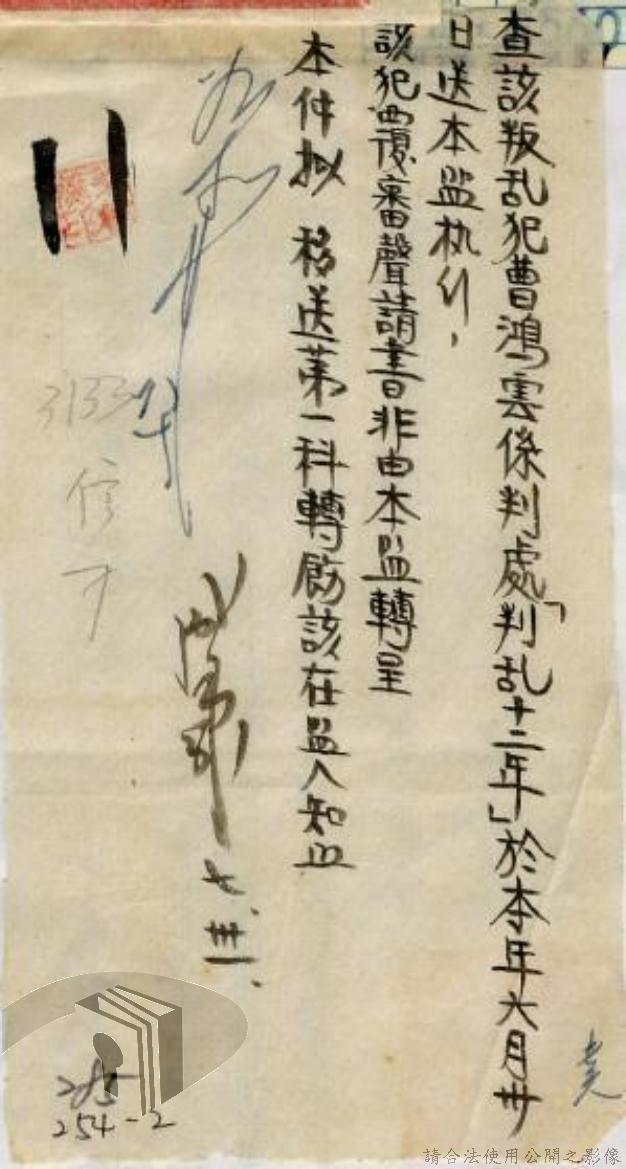 查該叛乱犯曹鴻雲係判處「判乱十二年」於本年六月卅
日送本监执行，
該犯要復審聲請書非由本监轉呈
本件拟 移送第一科轉飭該在监人知照
七.卅一.
3133
285
254-2
請合法使用公開之影像